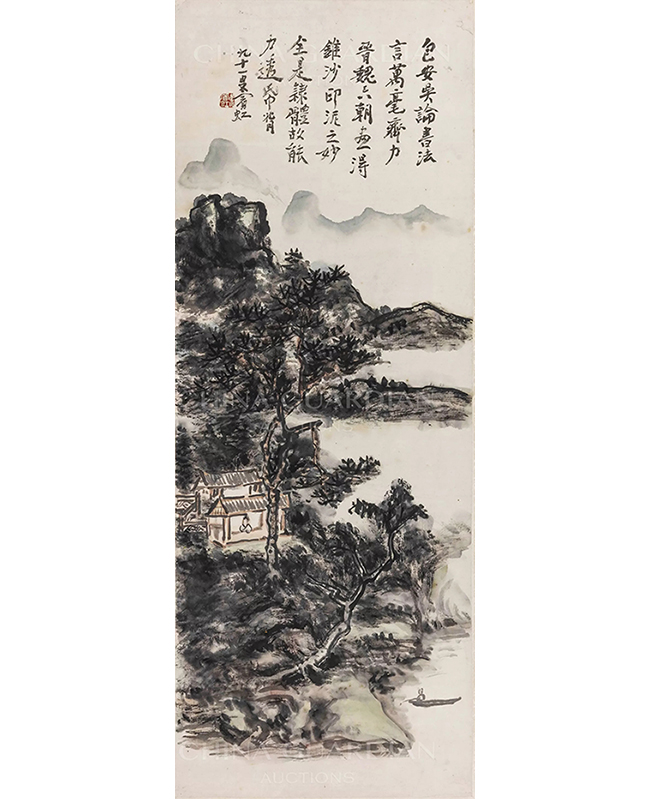 CHINA GUARDIAN
包安吳論書法
言萬毫齊力
晉魏六朝畫得
錐沙印泥之妙
全是隸體故能
力透帋背
九十一叟賓虹
CHINA GUARDIAN
AUCTIONS
CHINA GUARDIAN
AUCTIONS